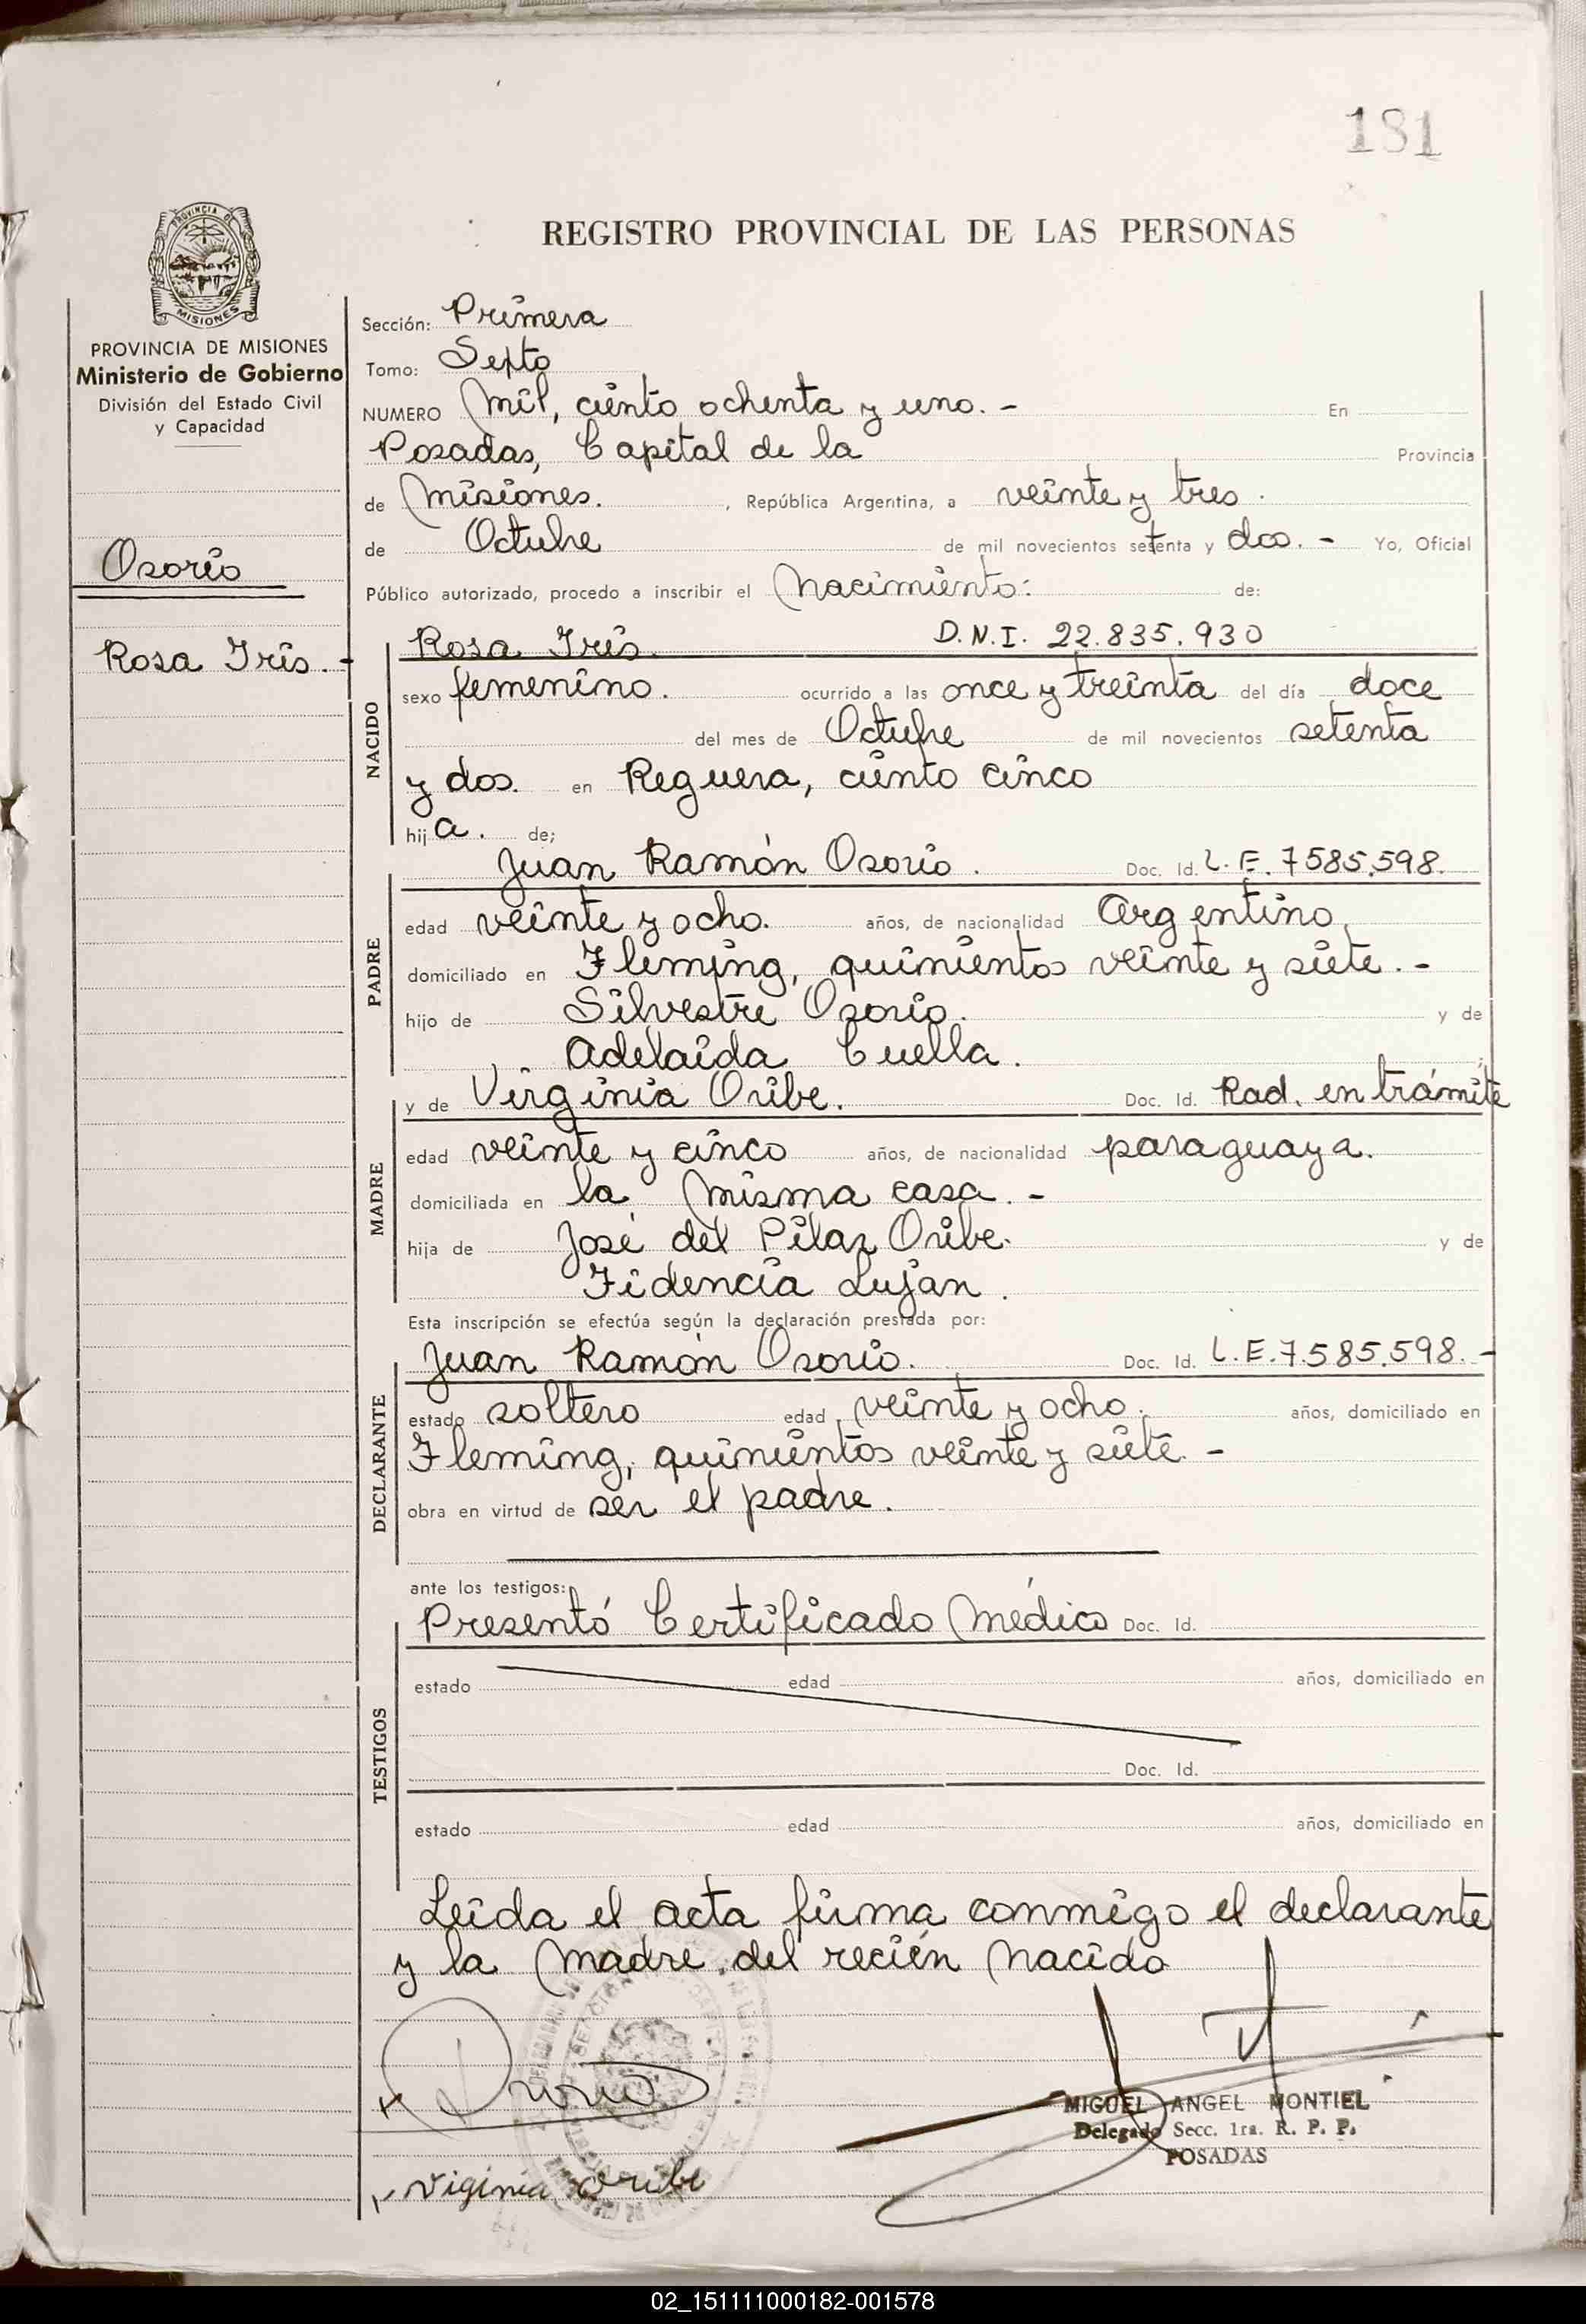 181
PROVINCIA DE
MISIONES
REGISTRO PROVINCIAL DE LAS PERSONAS
PROVINCIA DE MISIONES
Ministerio de Gobierno
División del Estado Civil
y Capacidad
Osorio
Rosa Iris. -
Sección: Primera
Tomo: Septo
NUMERO Mil, ciento ochenta y uno. - En
Posadas, Capital de la Provincia
de Misiones. , República Argentina, a veinte y tres.
de Octubre de mil novecientos setenta y dos. - Yo, Oficial
Público autorizado, procedo a inscribir el Nacimiento: de:
NACIDO
Rosa Iris. D.N.I. 22.835.930
sexo femenino. ocurrido a las once y treinta del día doce
del mes de Octubre de mil novecientos setenta
y dos. en Reguera, ciento cinco
hija. de;
PADRE
Juan Ramón Osorio. Doc. Id. L.E. 7585.598.
edad veinte y ocho. años, de nacionalidad Argentino,
domiciliado en Fleming, quinientos veinte y siete. -
hijo de Silvestre Osorio. y de
Adelaida Cuella. ;
MADRE
y de Virginia Oribe. Doc. Id. Rad. en trámite
edad veinte y cinco años, de nacionalidad paraguaya.
domiciliada en la misma casa. -
hija de José del Pilar Oribe. y de
Fidencia Lujan.
Esta inscripción se efectúa según la declaración prestada por:
DECLARANTE
Juan Ramón Osorio. Doc. Id. L.E. 7.585.598. -
estado soltero edad veinte y ocho. años, domiciliado en
Fleming, quinientos veinte y siete. -
obra en virtud de ser el padre.
ante los testigos:
TESTIGOS
Presentó Certificado Médico Doc. Id.
estado edad años, domiciliado en
Doc. Id.
estado edad años, domiciliado en
Leida el acta firma conmigo el declarante
y la madre del recién nacido
Osorio
MIGUEL ANGEL MONTIEL
Delegado Secc. 1ra. R. P. P.
POSADAS
Viginia Oribe
02_151111000182-001578